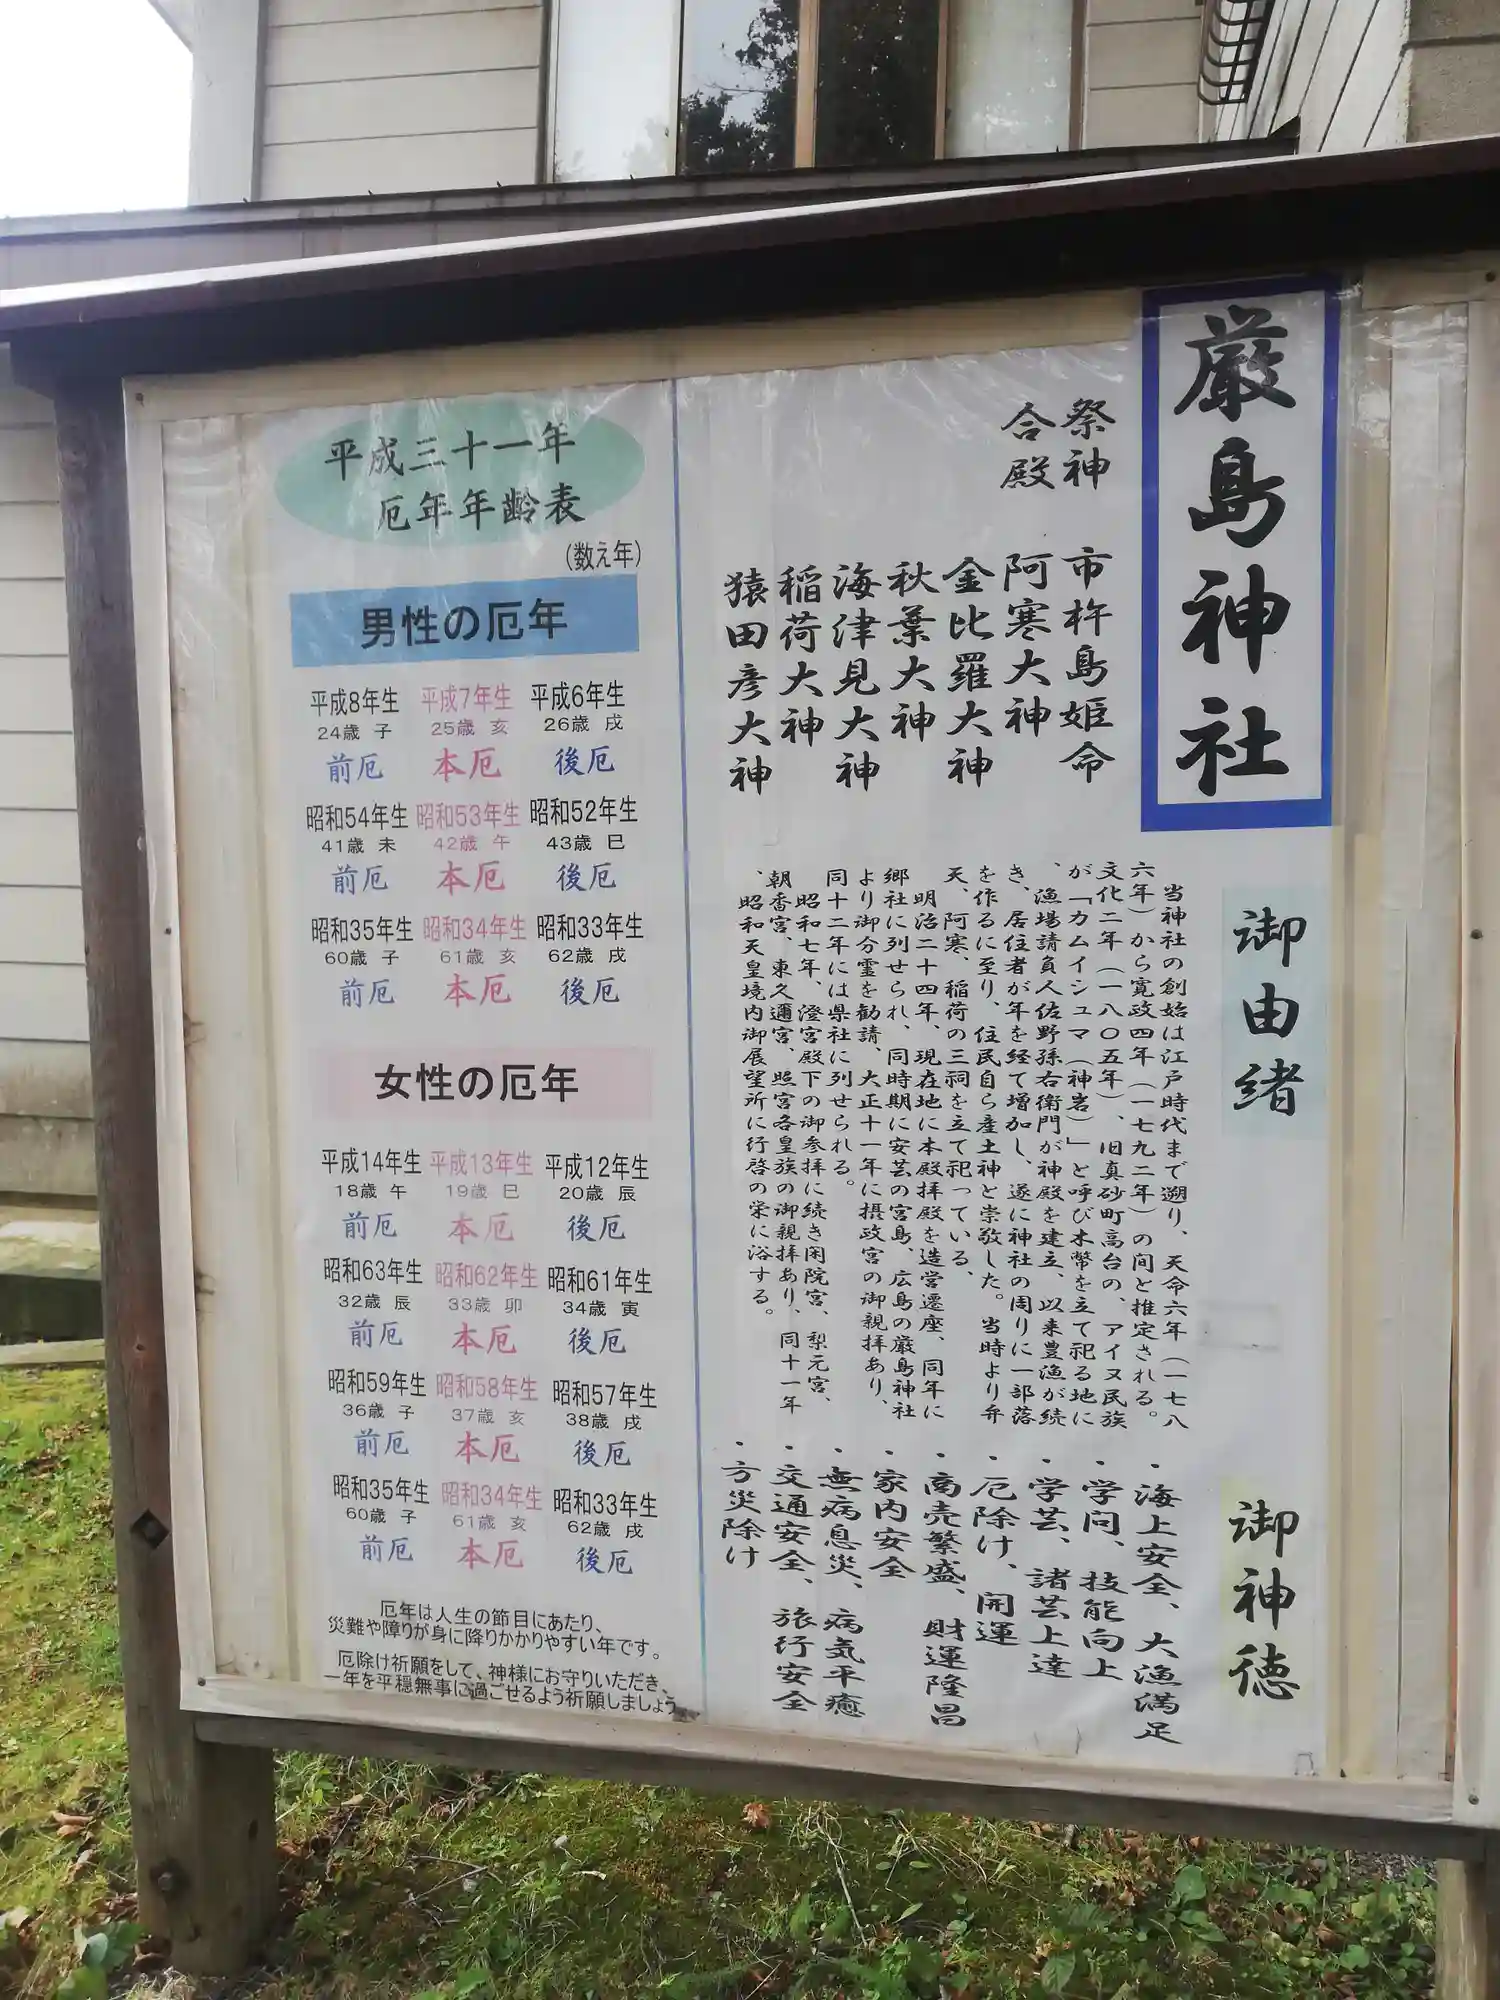 厳島神社
祭神 市杵島姫命
合殿 阿寒大神
金比羅大神
秋葉大神
海津見大神
稲荷大神
猿田彦大神
御由緒
当神社の創始は江戸時代まで遡り、天命六年(一七八
六年)から寛政四年(一七九二年)の間と推定される。
文化二年(一八〇五年)、旧真砂町高台の、アイヌ民族
が「カムイシュマ(神岩)」と呼び木幣を立て祀る地に
、漁場請負人佐野孫右衛門が神殿を建立、以来豊漁が続
き、居住者が年を経て増加し、遂に神社の周りに一部落
を作るに至り、住民自ら産土神と崇敬した。当時より弁
天、阿寒、稲荷の三祠を立て祀っている、
明治二十四年、現在地に本殿拝殿を造営遷座、同年に
郷社に列せられ、同時期に安芸の宮島、広島の厳島神社
より御分霊を勧請、大正十一年に摂政宮の御親拝あり、
同十二年には県社に列せられる。
昭和七年、澄宮殿下の御参拝に続き閑院宮、梨元宮、
朝香宮、東久邇宮、照宮各皇族の御親拝あり、同十一年
、昭和天皇境内御展望所に行啓の栄に浴する。
御神徳
・海上安全、大漁満足
・学問、技能向上
・学芸、諸芸上達
・厄除け、開運
・商売繁盛、財運隆昌
・家内安全
・無病息災、病気平癒
・交通安全、旅行安全
・方災除け
平成三十一年
厄年年齢表
(数え年)
男性の厄年
平成8年生 平成7年生 平成6年生
24歳 子 25歳 亥 26歳 戌
前厄 本厄 後厄
昭和54年生 昭和53年生 昭和52年生
41歳 未 42歳 午 43歳 巳
前厄 本厄 後厄
昭和35年生 昭和34年生 昭和33年生
60歳 子 61歳 亥 62歳 戌
前厄 本厄 後厄
女性の厄年
平成14年生 平成13年生 平成12年生
18歳 午 19歳 巳 20歳 辰
前厄 本厄 後厄
昭和63年生 昭和62年生 昭和61年生
32歳 辰 33歳 卯 34歳 寅
前厄 本厄 後厄
昭和59年生 昭和58年生 昭和57年生
36歳 子 37歳 亥 38歳 戌
前厄 本厄 後厄
昭和35年生 昭和34年生 昭和33年生
60歳 子 61歳 亥 62歳 戌
前厄 本厄 後厄
厄年は人生の節目にあたり、
災難や障りが身に降りかかりやすい年です。
厄除け祈願をして、神様にお守りいただき、
一年を平穏無事に過ごせるよう祈願しましょう